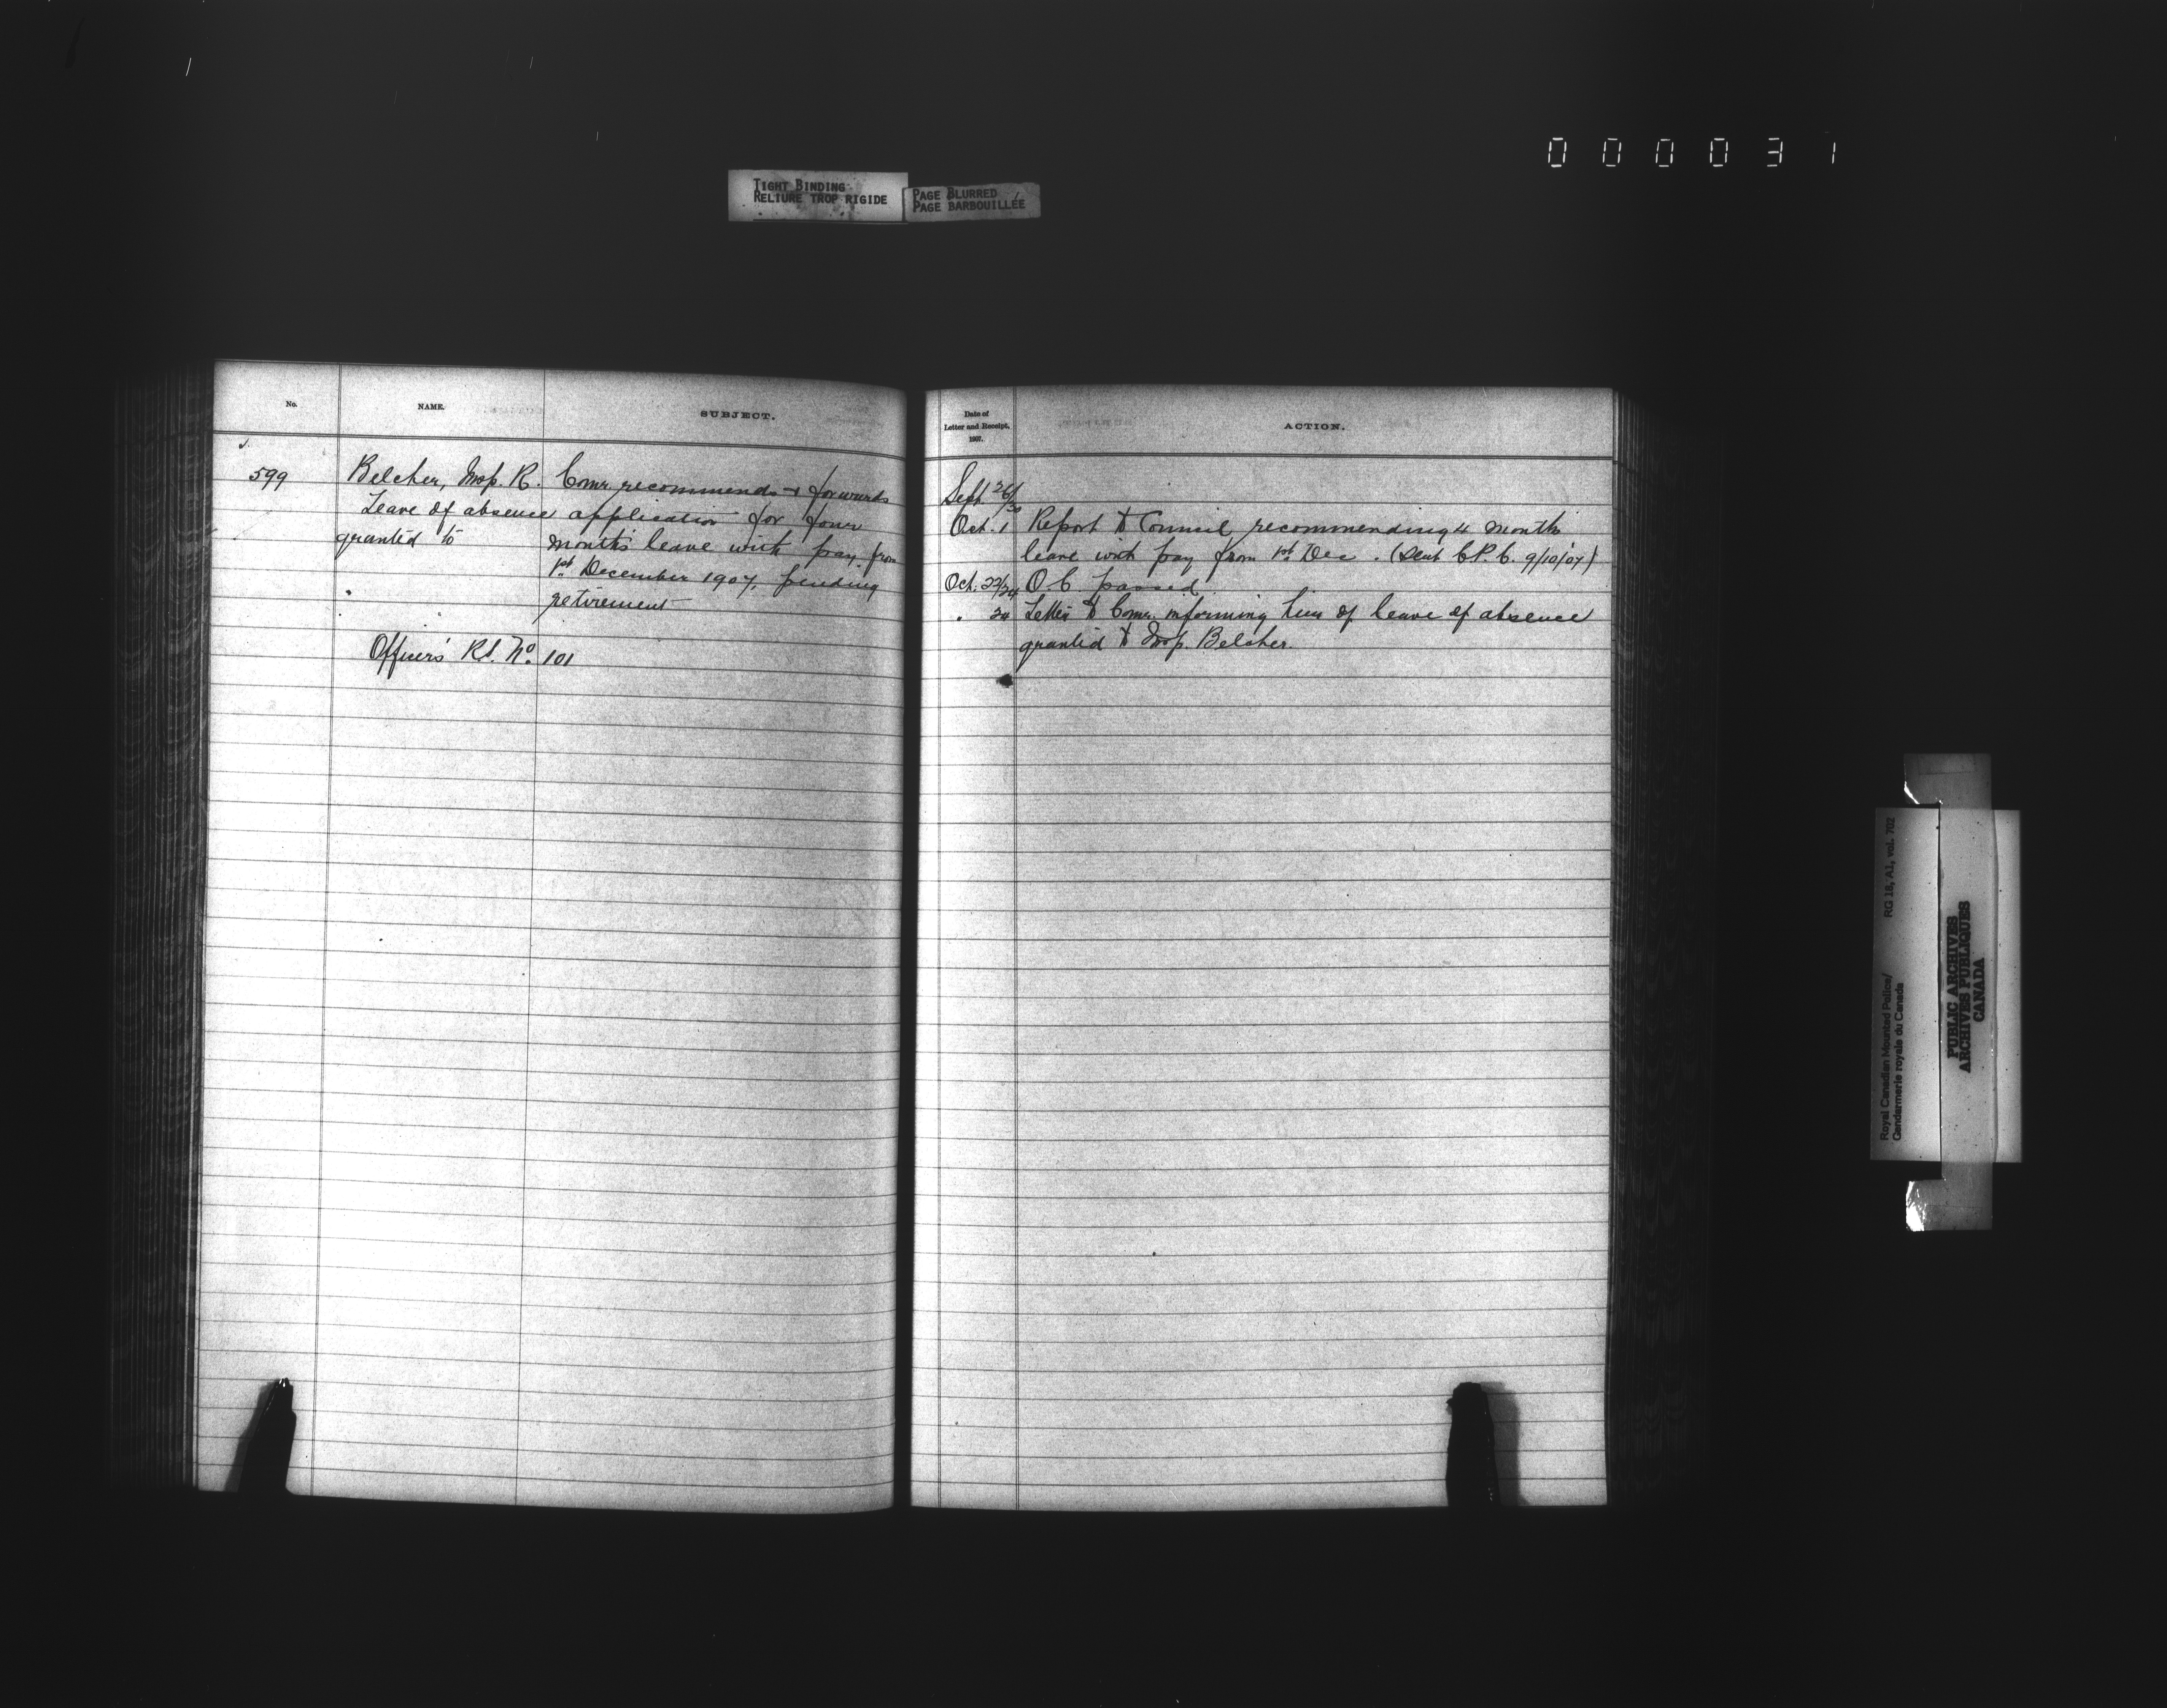 000031
TIGHT BINDING
RELIURE TROP RIGIDE
PAGE BLURRED
PAGE BARBOUILLÉE
No.
NAME.
SUBJECT.
599
Belcher, Insp. R.
Leave of absence
granted to
Comr. recommends & forwards
application for four
months leave with pay from
1st December 1907, pending
retirement
Officers' Rl. No. 101
Date of
Letter and Receipt,
1907.
ACTION.
Sept 26/30
Oct. 1 Report to Council recommending 4 months
leave with pay from 1st Dec. (Sent C.P.C. 9/10/07)
Oct. 22/24 O C passed
" 24 Letter to Comr. informing him of leave of absence
granted to Insp. Belcher.
Royal Canadian Mounted Police/ RG 18, A1, vol. 702
Gendarmerie royale du Canada
PUBLIC ARCHIVES
ARCHIVES PUBLIQUES
CANADA